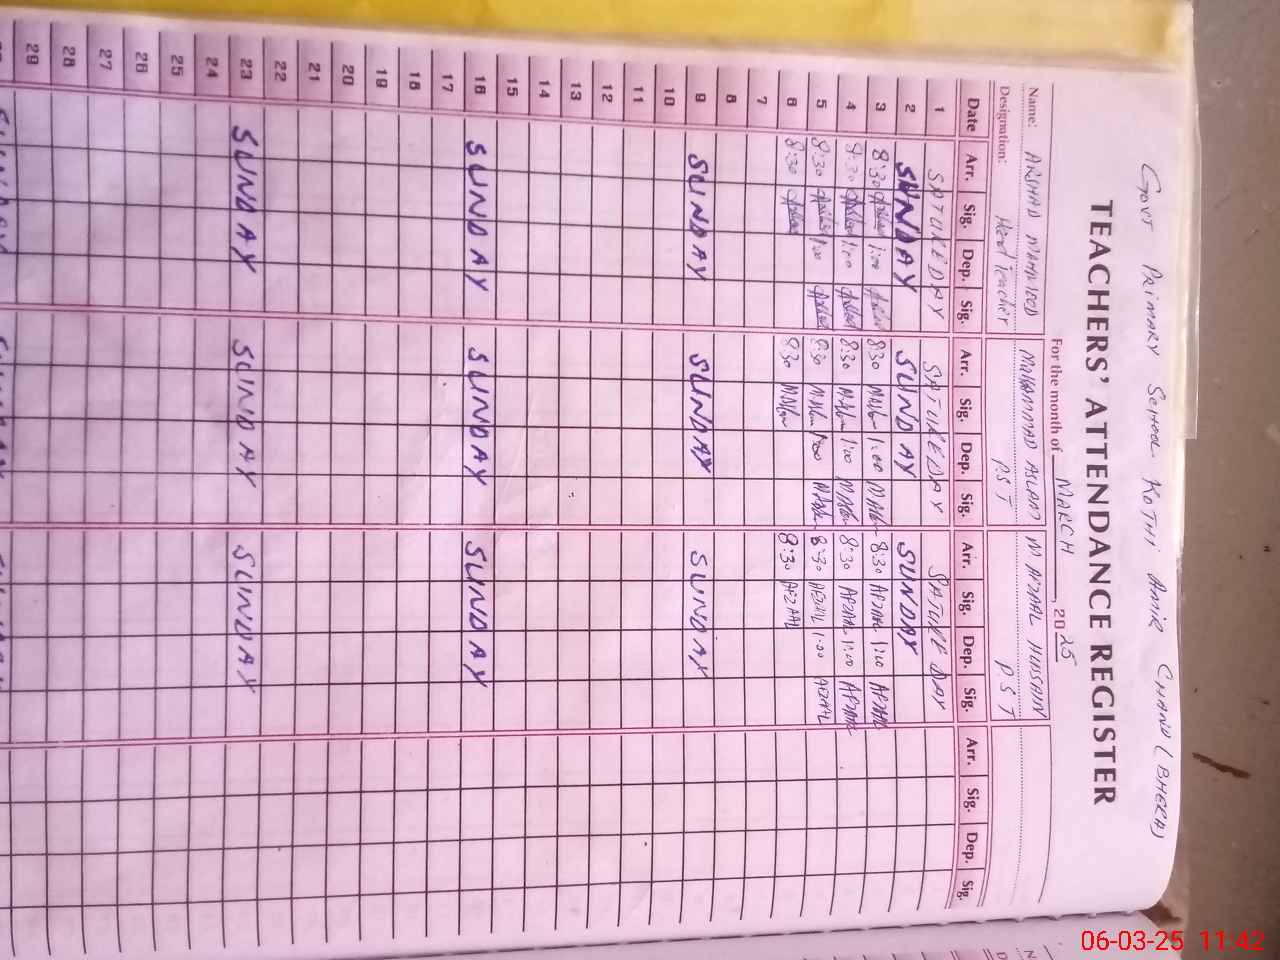 GOVT PRIMARY SCHOOL KOTHI AMIR CHAND (BHERA)
TEACHERS' ATTENDANCE REGISTER
For the month of MARCH, 2025
Name: ARSHAD MAHMOOD MUHAMMAD ASLAM M AFZAAL HUSSAIN
Designation: Head Teacher P.S.T P.S.T
Date Arr. Sig. Dep. Sig. Arr. Sig. Dep. Sig. Arr. Sig. Dep. Sig. Arr. Sig. Dep. Sig.
1 SATUREDAY SATUREDAY SATUREDAY
2 SUNDAY SUNDAY SUNDAY
3 8:30 1:00 8:30 1:00 8:30 AFZAAL 1:00 AFZAAL
4 8:30 1:00 8:30 1:00 8:30 AFZAAL 1:00 AFZAAL
5 8:30 1:00 8:30 1:00 8:30 AFZAAL 1:00 AFZAAL
6 8:30 8:30 8:30 AFZAAL
7
8
9 SUNDAY SUNDAY SUNDAY
10
11
12
13
14
15
16 SUNDAY SUNDAY SUNDAY
17
18
19
20
21
22
23 SUNDAY SUNDAY SUNDAY
24
25
26
27
28
29
06-03-25 11:42